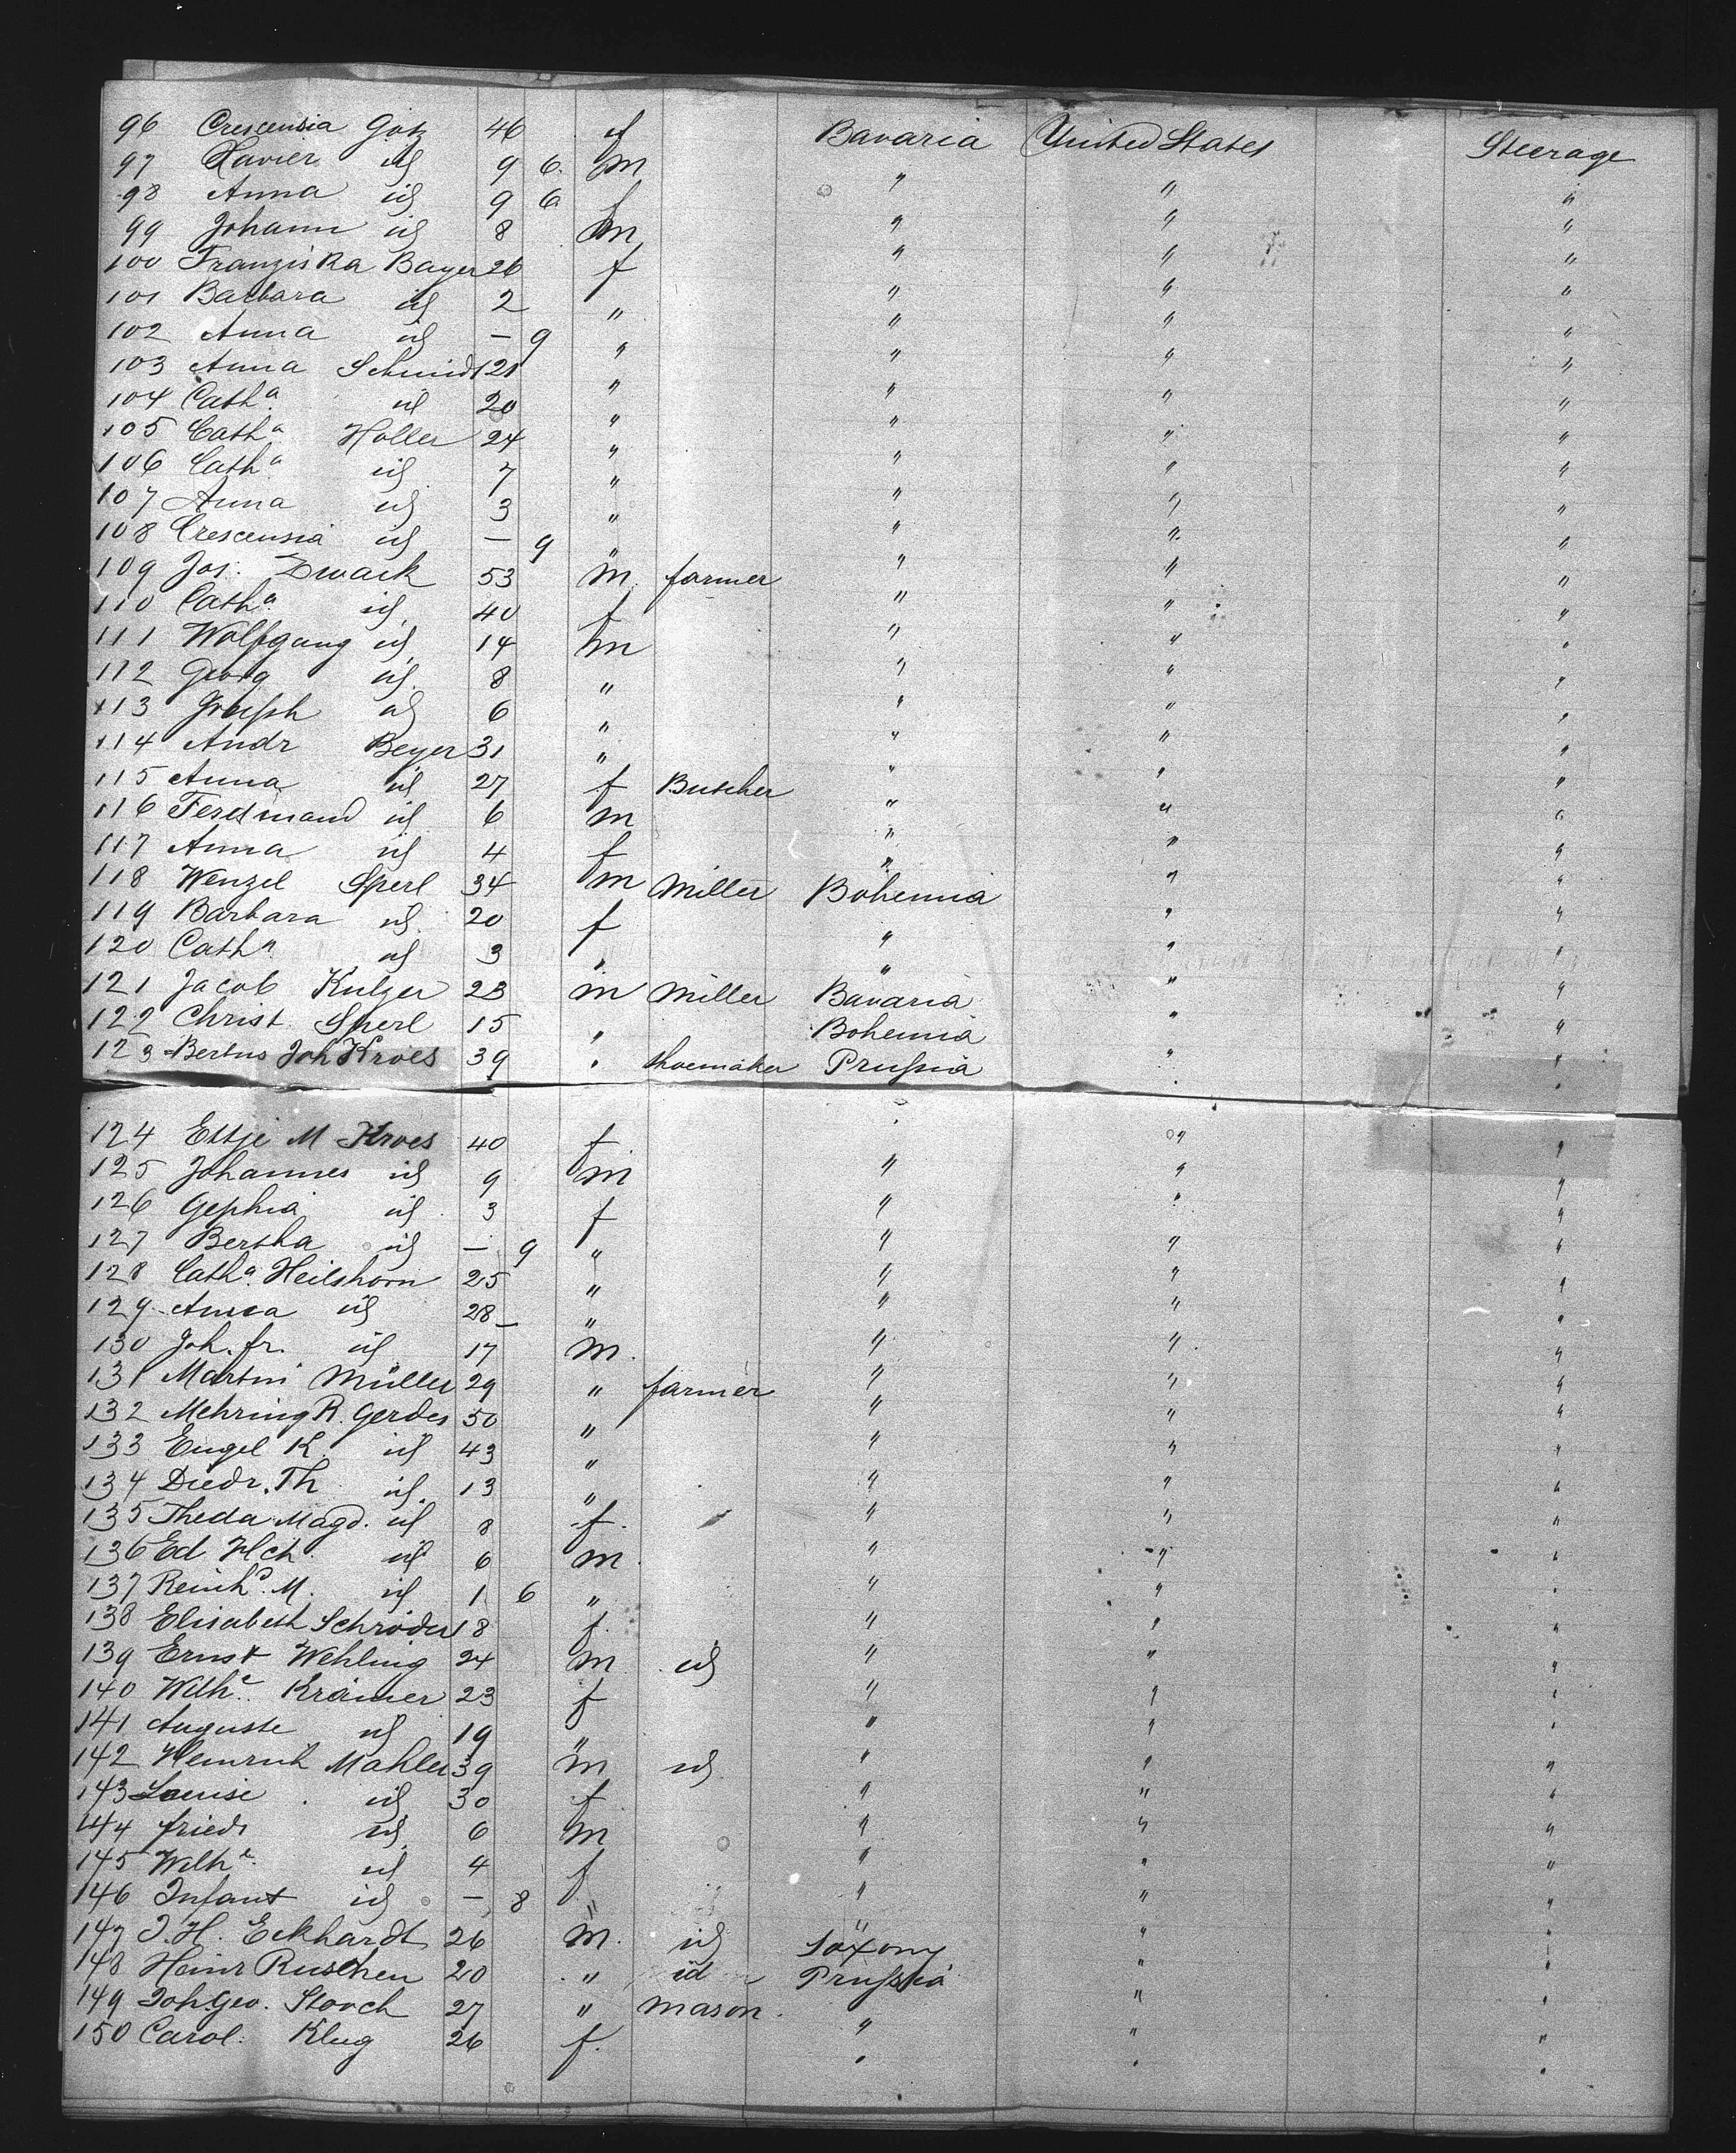 96 Crescensia Götz 46 f Bavaria United States Steerage
97 Xavier id 9 6 m " " "
98 Anna id 9 6 f " " "
99 Johann id 8 m " " "
100 Franziska Bayer 26 f " " "
101 Barbara id 2 " " " "
102 Anna id — 9 " " " "
103 Anna Schmidt 21 " " " "
104 Cath.a id 20 " " " "
105 Cath.a Holler 24 " " " "
106 Cath.a id 7 " " " "
107 Anna id 3 " " " "
108 Crescensia id — 9 " " " "
109 Jos. Zwack 53 m farmer " " "
110 Cath.a id 40 f " " "
111 Wolfgang id 14 m " " "
112 Georg id 8 " " " "
113 Joseph id 6 " " " "
114 Andr Beyer 31 " " " "
115 Anna id 27 f Butcher " " "
116 Ferdinand id 6 m " " "
117 Anna id 4 f " " "
118 Wenzel Sperl 34 m Miller Bohemia " "
119 Barbara id 20 f " " "
120 Cath.a id 3 " " " "
121 Jacob Kulzer 23 m Miller Bavaria " "
122 Christ. Sperl 15 " Bohemia " "
123 Bertus Joh Kroes 39 " Shoemaker Prussia " "
124 Ettje M Kroes 40 f " " "
125 Johannes id 9 m " " "
126 Gephia id 3 f " " "
127 Bertha id — 9 " " " "
128 Cath.a Heilshorn 25 " " " "
129 Anna id 28 — " " " "
130 Joh. fr. id 17 m " " "
131 Martin Müller 29 " farmer " " "
132 Mehring R. Gerdes 50 " " " "
133 Engel K. id 43 " " " "
134 Diedr. Th id 13 " " " "
135 Theda Magd. id 8 f " " "
136 Ed Hch. id 6 m " " "
137 Reinhd. M. id 1 6 " " " "
138 Elisabeth Schröder 18 f " " "
139 Ernst Wehling 24 m id " " "
140 Wilhe. Krämer 23 f " " "
141 Auguste id 19 " " " "
142 Heinrich Mahler 39 m id " " "
143 Louise id 30 f " " "
144 friedr id 6 m " " "
145 Wilhe. id 4 f " " "
146 Infant id — 8 " " " "
147 J. H. Eckhardt 26 m id Saxony " "
148 Heinr Ruschen 20 " id Prussia " "
149 Joh. Geo. Storch 27 " mason " " "
150 Carol. Klug 26 f " " "